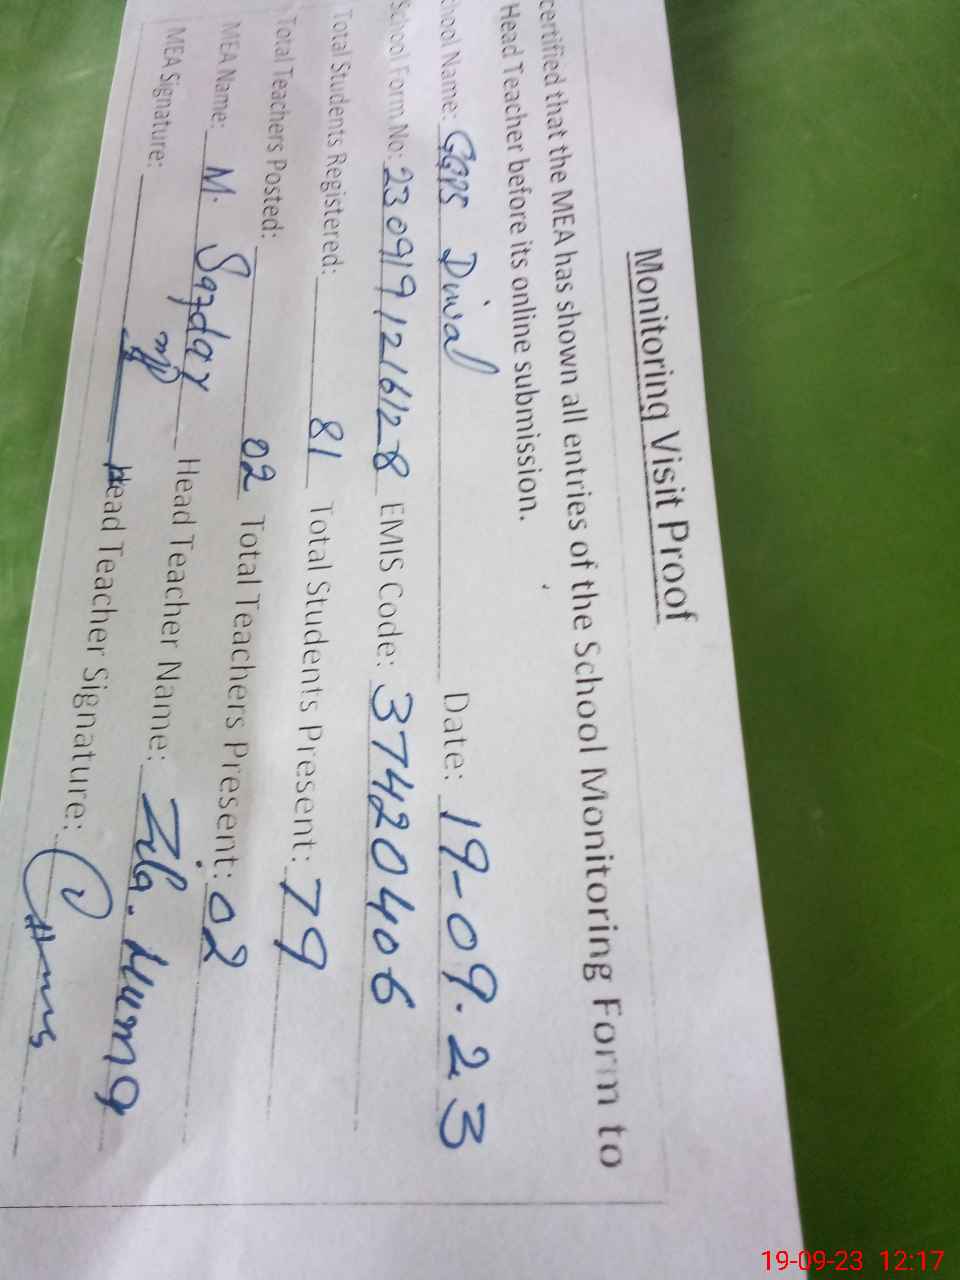 Monitoring Visit Proof
certified that the MEA has shown all entries of the School Monitoring Form to
Head Teacher before its online submission.
chool Name: GGPS Diwal Date: 19-09.23
School Form No: 230919121612-8 EMIS Code: 37420406
Total Students Registered: 81 Total Students Present: 79
Total Teachers Posted: 02 Total Teachers Present: 02
MEA Name: M. Safdar Head Teacher Name: Zila. Huma
MEA Signature: Head Teacher Signature:
19-09-23 12:17